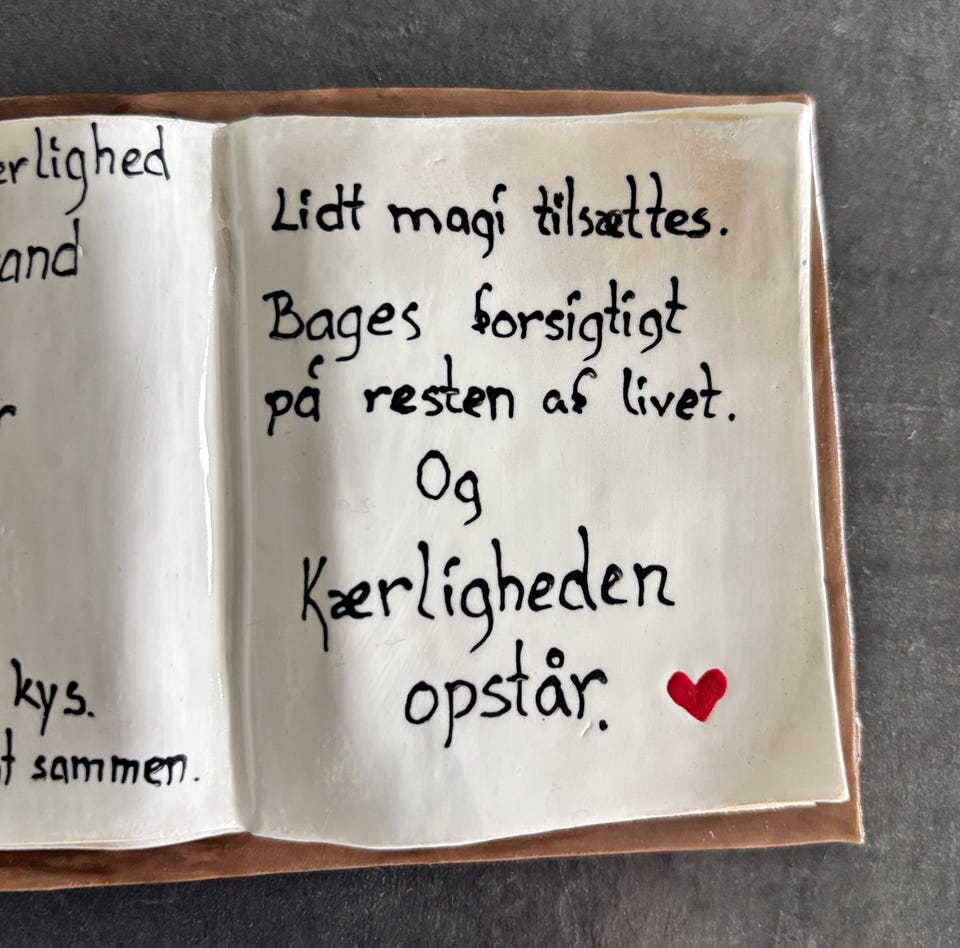 erlighed
and
r
kys.
t sammen.
Lidt magi tilsættes.
Bages forsigtigt
på resten af livet.
Og
Kærligheden
opstår.